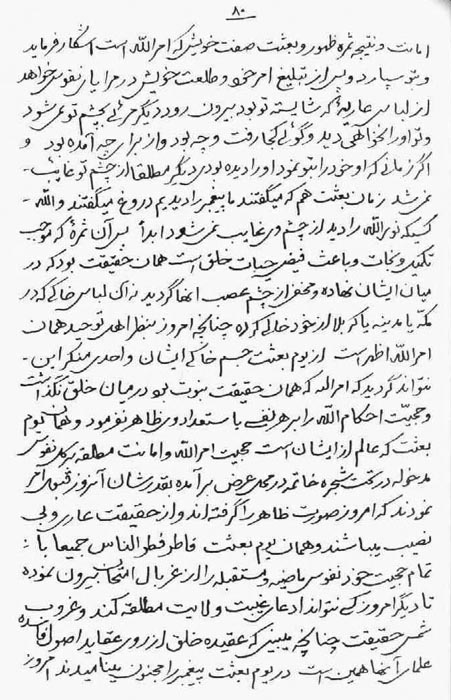 ۸۰
امانت و نتیجه ثمره ظهور و بعثت صفت خویش که امر الله است اشکار فرماید
و بتو سپارد و پس از تبلیغ امر خود و طلعت خویش در مرایای نفوس خواهد
از لباس عاریهٔ که شایسته تو بود بیرون رود دیگر مرئی بچشم تو نمی شود
و تو او را نخواهی دید و گوئی کجا رفت و چه بود و از برای چه آمده بود و
اگر زمانی که او خود را بتو نمود او را دیده بودی دیگر مطلقا از چشم تو غایب
نمی شد زمان بعثت هم که میگفتند ما پیغمبر را دیدیم دروغ میگفتند والله
کسیکه نور الله را دید از چشم وی غایب نمی شود ابداً پس آن ثمرهٔ که موجب
تکمیل و نجات و باعث فیض حیات خلق است همان حقیقت بود که در
میان ایشان نهاده و مخفی از چشم عصب انها گردید نه اک لباس خاکی که در
مکه یا مدینه یا کربلا از خود خالی کرده چنانچه امروز بنظر اهل توحید همان
امر الله اظهر است از یوم بعثت جسم خاکی ایشان واحدی منکر این
نتواند گردید که امر الله که همان حقیقت نبوت بود در میان خلق نگذاشت
و حجیت احکام الله را بر هر یک باستعداد وی ظاهر نفرمود و همان یوم
بعثت که عالم از ایشان است حجیت امر الله و امانت مطلقه بر کل نفوس
مدخوله در تحت شجره خاتمه در محل عرض بر آمده بقدرشان آنروز قبول امر
نمودند که امروز صورت ظاهر را گرفته اند و از حقیقت عاری و بی
نصیب میباشند و همان یوم بعثت فاطر فطر الناس جمیعا با
تمام حجیت خود نفوس ماضیه و مستقبله را از غربال امتحان بیرون نموده
تا دیگر امروز کسی نتواند ادعای غیبت ولایت مطلقه کند و غروب
شمس حقیقت چنانچه میبینی که عقیده خلق از روی عقاید اصول
علمای آنها همین است در یوم بعثت پیغمبر را مجنون مینامیدند امروز